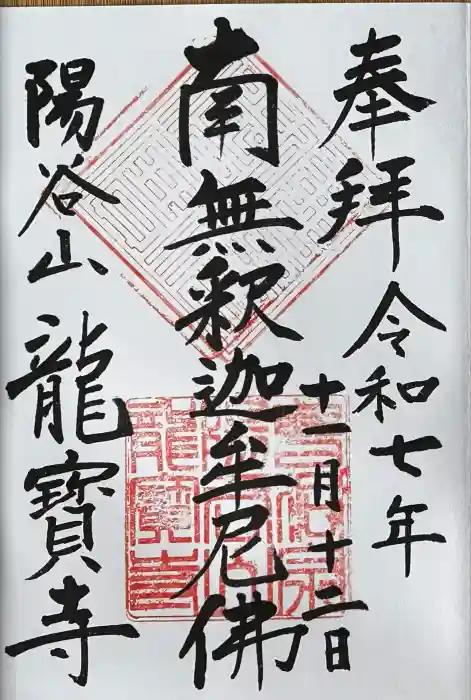 奉拝
令和七年
十一月十二日
南無釈迦牟尼佛
陽谷山
龍寶寺